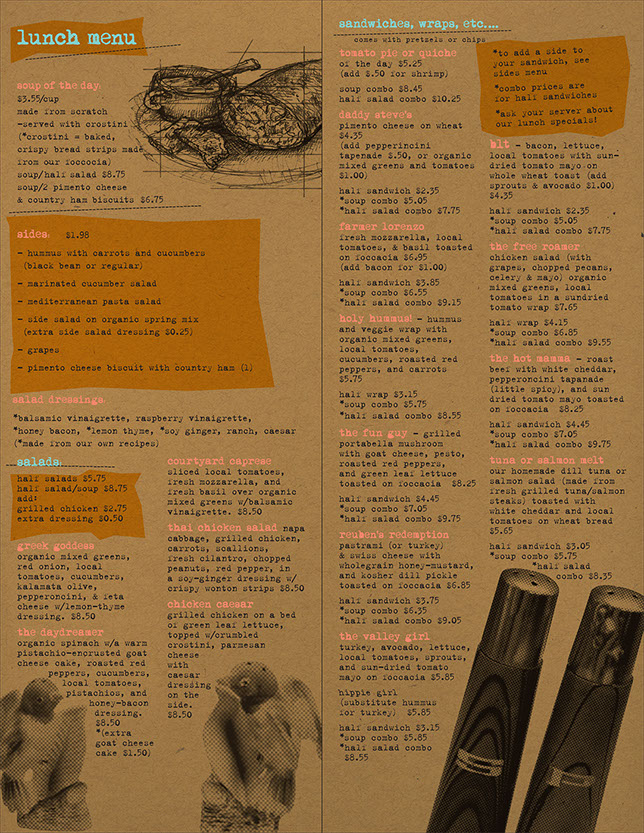 lunch menu
soup of the day:
$3.55/cup
made from scratch
-served with crostini
(*crostini = baked,
crispy bread strips made
from our foccocia)
soup/half salad $8.75
soup/2 pimento cheese
& country ham biscuits $6.75
sides: $1.98
- hummus with carrots and cucumbers
(black bean or regular)
- marinated cucumber salad
- mediterranean pasta salad
- side salad on organic spring mix
(extra side salad dressing $0.25)
- grapes
- pimento cheese biscuit with country ham (1)
salad dressings:
*balsamic vinaigrette, raspberry vinaigrette,
*honey bacon, *lemon thyme, *soy ginger, ranch, caesar
(*made from our own recipes)
salads:
half salads $5.75
half salad/soup $8.75
add:
grilled chicken $2.75
extra dressing $0.50
greek goddess
organic mixed greens,
red onion, local
tomatoes, cucumbers,
kalamata olive,
pepperoncini, & feta
cheese w/lemon-thyme
dressing. $8.50
the daydreamer
organic spinach w/a warm
pistachio-encrusted goat
cheese cake, roasted red
peppers, cucumbers,
local tomatoes,
pistachios, and
honey-bacon
dressing.
$8.50
*(extra
goat cheese
cake $1.50)
courtyard caprese
sliced local tomatoes,
fresh mozzarella, and
fresh basil over organic
mixed greens w/balsamic
vinaigrette. $8.50
thai chicken salad napa
cabbage, grilled chicken,
carrots, scallions,
fresh cilantro, chopped
peanuts, red pepper, in
a soy-ginger dressing w/
crispy wonton strips $8.50
chicken caesar
grilled chicken on a bed
of green leaf lettuce,
topped w/crumbled
crostini, parmesan
cheese
with
caesar
dressing
on the
side.
$8.50
sandwiches, wraps, etc....
comes with pretzels or chips
tomato pie or quiche
of the day $5.25
(add $.50 for shrimp)
soup combo $8.45
half salad combo $10.25
daddy steve's
pimento cheese on wheat
$4.35
(add pepperincini
tapenade $.50, or organic
mixed greens and tomatoes
$1.00)
half sandwich $2.35
*soup combo $5.05
*half salad combo $7.75
farmer lorenzo
fresh mozzarella, local
tomatoes, & basil toasted
on foccacia $6.95
(add bacon for $1.00)
half sandwich $3.85
*soup combo $6.55
*half salad combo $9.15
holy hummus! - hummus
and veggie wrap with
organic mixed greens,
local tomatoes,
cucumbers, roasted red
peppers, and carrots
$5.75
half wrap $3.15
*soup combo $5.75
*half salad combo $8.55
the fun guy - grilled
portabella mushroom
with goat cheese, pesto,
roasted red peppers,
and green leaf lettuce
toasted on foccacia $8.25
half sandwich $4.45
*soup combo $7.05
*half salad combo $9.75
reuben's redemption
pastrami (or turkey)
& swiss cheese with
wholegrain honey-mustard,
and kosher dill pickle
toasted on foccacia $6.85
half sandwich $3.75
*soup combo $6.35
*half salad combo $9.05
the valley girl
turkey, avocado, lettuce,
local tomatoes, sprouts,
and sun-dried tomato
mayo on foccacia $5.85
hippie girl
(substitute hummus
for turkey) $5.85
half sandwich $3.15
*soup combo $5.85
*half salad combo
$8.55
*to add a side to
your sandwich, see
sides menu
*combo prices are
for half sandwiches
*ask your server about
our lunch specials!
blt - bacon, lettuce,
local tomatoes with sun-
dried tomato mayo on
whole wheat toast (add
sprouts & avocado $1.00)
$4.35
half sandwich $2.35
*soup combo $5.05
*half salad combo $7.75
the free roamer
chicken salad (with
grapes, chopped pecans,
celery & mayo) organic
mixed greens, local
tomatoes in a sundried
tomato wrap $7.65
half wrap $4.15
*soup combo $6.85
*half salad combo $9.55
the hot mamma - roast
beef with white cheddar,
pepperoncini tapanade
(little spicy), and sun
dried tomato mayo toasted
on foccacia $8.25
half sandwich $4.45
*soup combo $7.05
*half salad combo $9.75
tuna or salmon melt
our homemade dill tuna or
salmon salad (made from
fresh grilled tuna/salmon
steaks) toasted with
white cheddar and local
tomatoes on wheat bread
$5.65
half sandwich $3.05
*soup combo $5.75
*half salad
combo $8.35